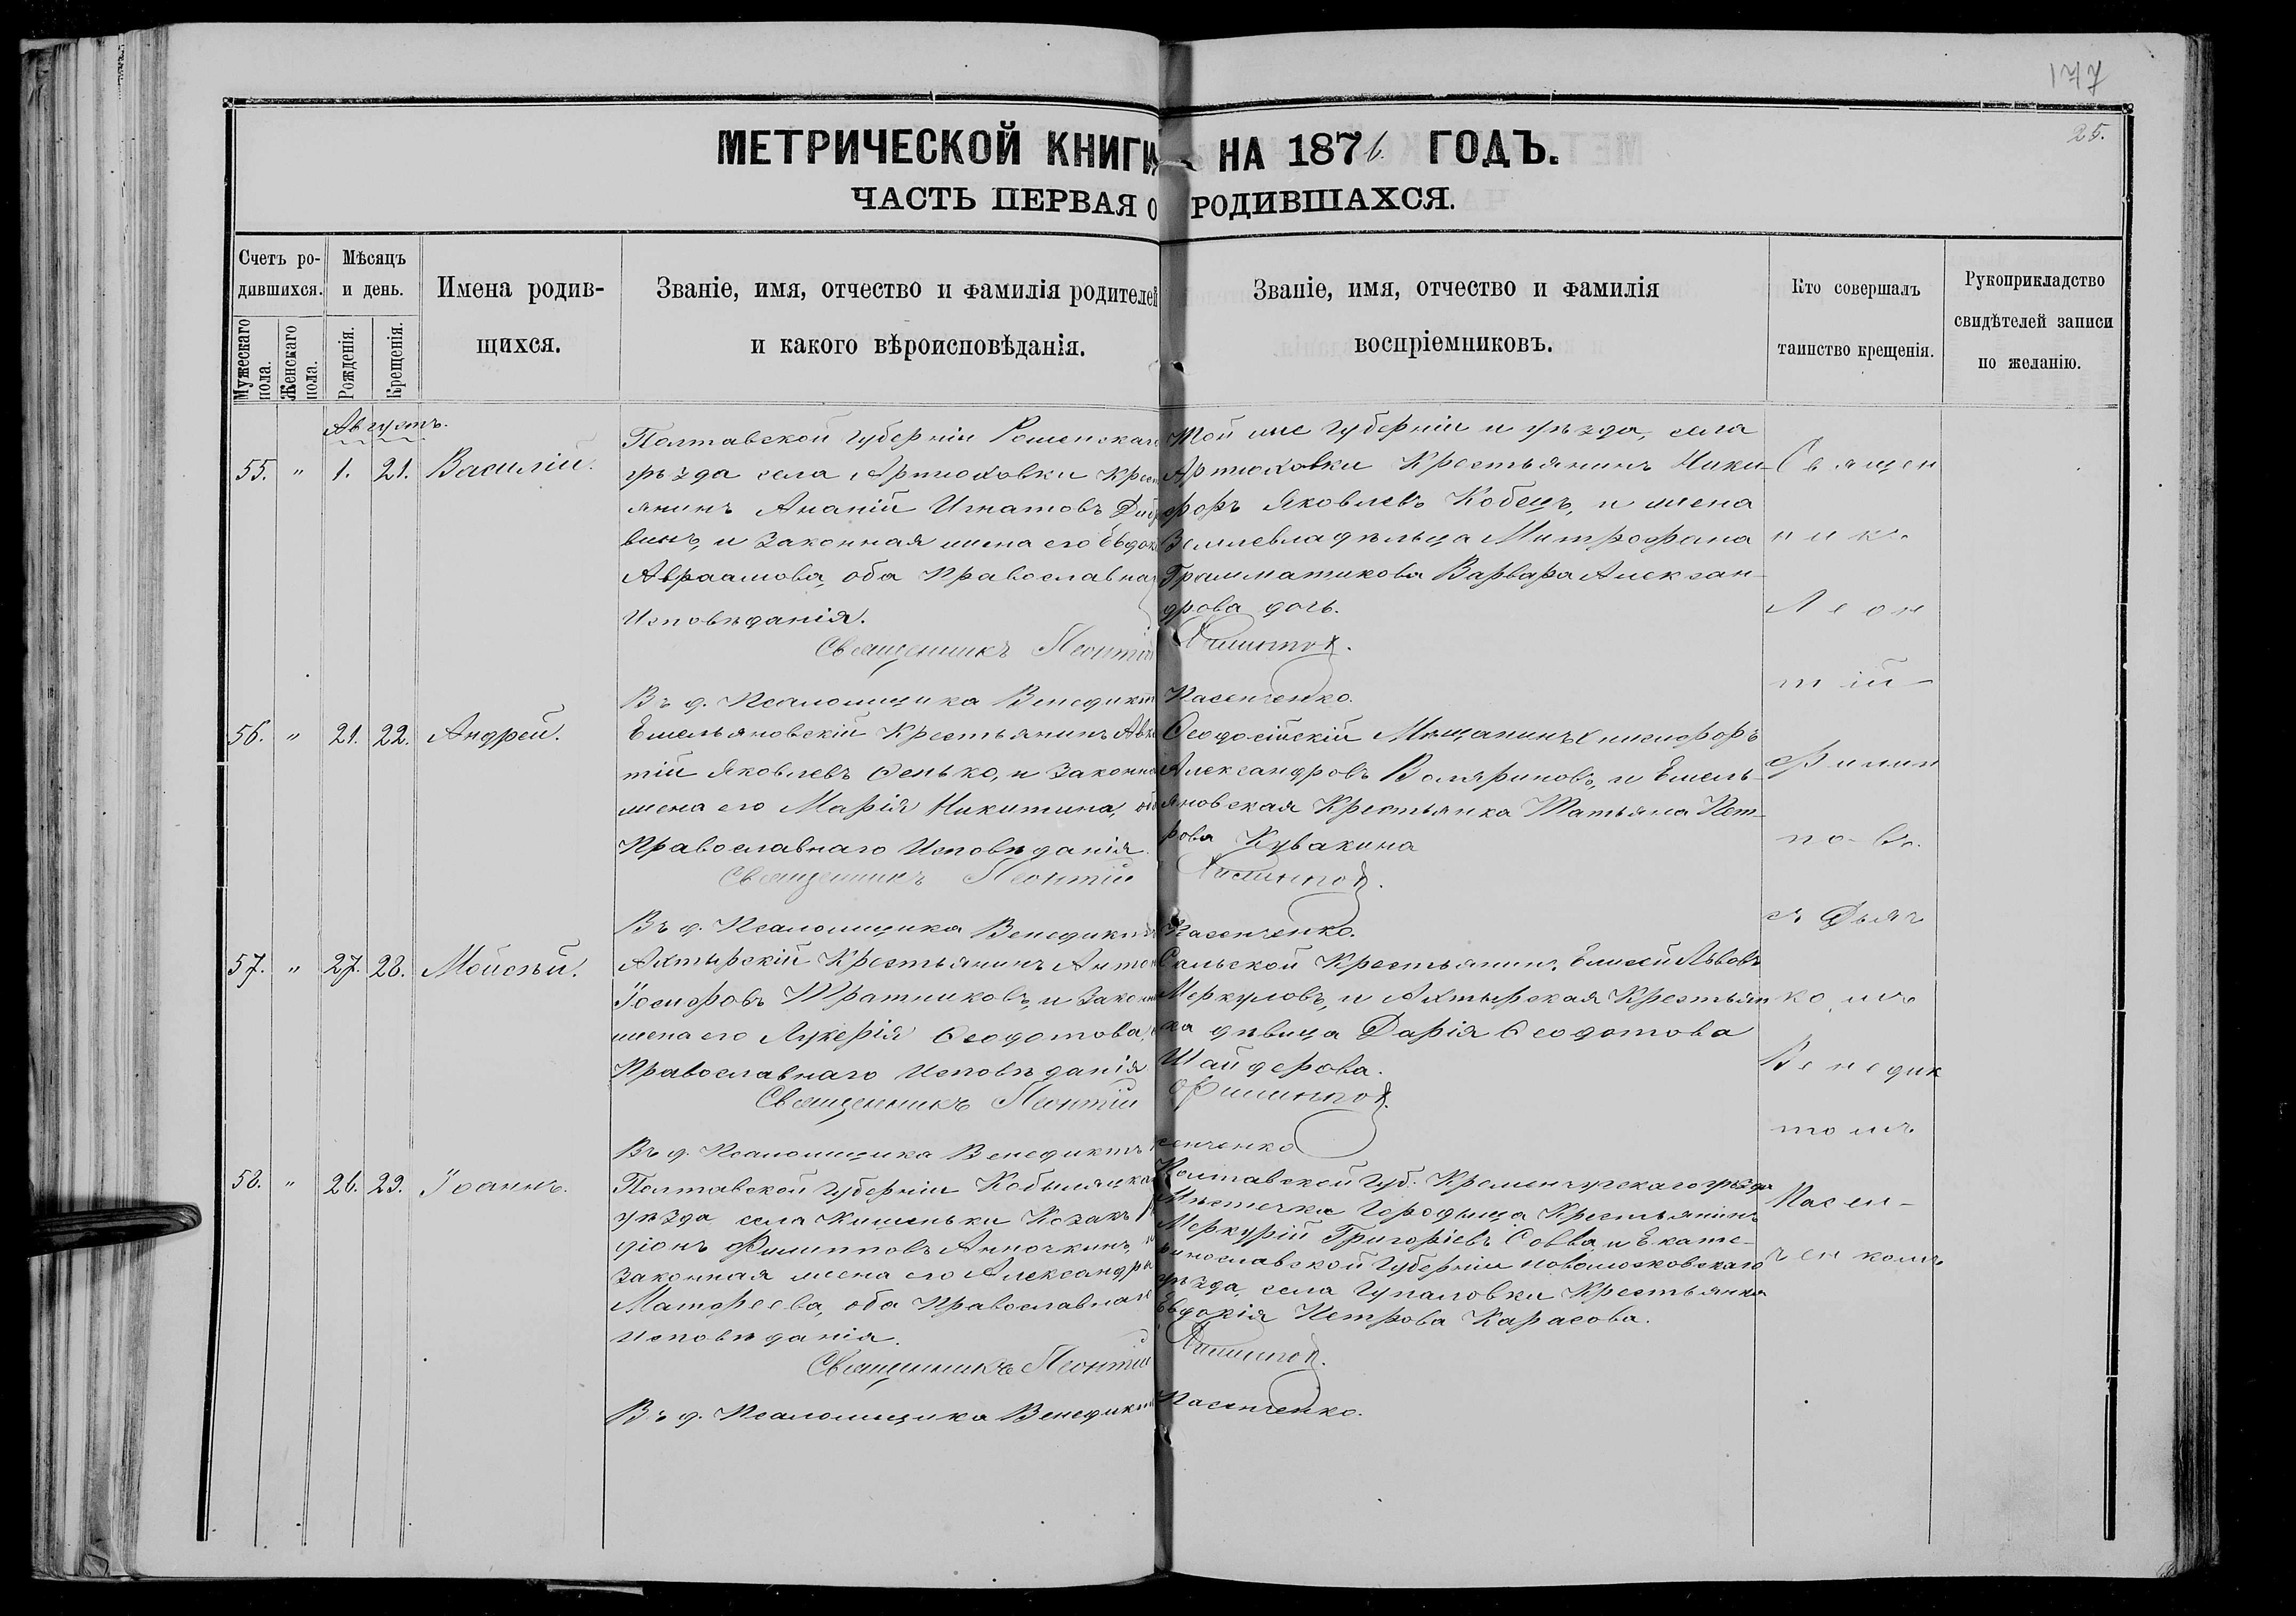 177
25.
МЕТРИЧЕСКОЙ КНИГИ НА 1876. ГОДЪ.
ЧАСТЬ ПЕРВАЯ О РОДИВШАХСЯ.
Счетъ ро-
дившихся.
Мужескаго пола.
Женскаго пола.
Мѣсяцъ
и день.
Рожденія.
Крещенія.
Имена родив-
щихся.
Званіе, имя, отчество и фамилія родителей
и какого вѣроисповѣданія.
Званіе, имя, отчество и фамилія
воспріемниковъ.
Кто совершалъ
таинство крещенія.
Рукоприкладство
свидѣтелей записи
по желанію.
Августъ.
55. " 1. 21. Василій.
Полтавской губерніи Роменскаго
уѣзда села Артюховки Крест
янинъ Ананій Игнатовъ
винъ, и законная жена его Евдок
Авраамова, оба Православнаго
Исповѣданія.
Священникъ Леонтій
Въ д. Псаломщика Венедиктъ
Той же губерніи и уѣзда, села
Артюховки Крестьянинъ Ники-
форъ Яковлевъ Кобецъ, и жена
Землевладѣльца Митрофана
Грамматикова Варвара Алексан-
дрова дочь.
Филиппов.
Пасенченко.
56. " 21. 22. Андрей.
Емельяновскій Крестьянинъ Авк
тій Яковлевъ Сенько, и законна
жена его Марія Никитина, об
Православнаго Исповѣданія.
Священникъ Леонтій
Въ д. Псаломщика Венедиктъ
Ѳеодосійскій Мѣщанинъ Никифоръ
Александровъ Воляриновъ, и Емель-
яновская Крестьянка Татьяна Пет-
рова Кувакина
Филиппов.
Пасенченко.
57. " 27. 28. Мойсѣй.
Ахтырскій Крестьянинъ Антон
Іосифовъ Тратниковъ, и законн
жена его Лукерія Ѳеодотова,
Православнаго Исповѣданія
Священникъ Леонтій
Въ д. Псаломщика Венедиктъ
Сальской Крестьянинъ Елисей Львовъ
Меркуловъ, и Ахтырская Крестьян
ка дѣвица Дарія Ѳеодотова
Шайдерова.
Филиппов.
сенченко
58. " 26. 29. Іоаннъ.
Полтавской губерніи Кобыляцка
уѣзда села Кишеньки Козакъ
діонъ Филипповъ Анночкинъ,
законная жена его Александра
Матфеева, оба Православнаго
Исповѣданія.
Священникъ Леонтій
Въ д. Псаломщика Венедиктъ
Полтавской Губ. Кременчугскаго уѣзда
Мѣстечка Городища Крестьянинъ
Меркурій Григоріевъ Савва, и Екате-
ринославской Губерніи Новомосковскаго
уѣзда, села Гупаловки Крестьянка
Евдокія Петрова Карасова.
Филиппов.
Пасенченко.
Священ
никъ
Леон
тій
Филип
повъ.
съ Дьяч
комъ
Венедик
томъ
Пасен-
ченкомъ